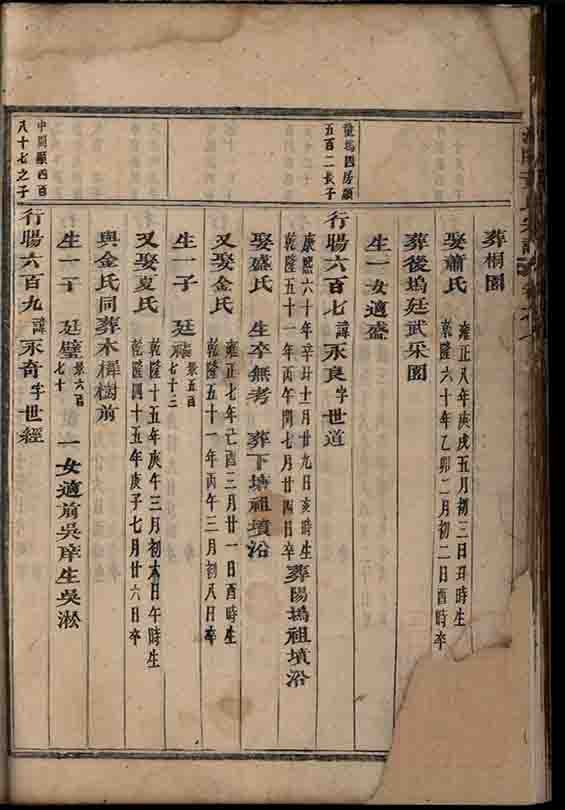 葬桐園
娶蕭氏 雍正八年庚戌五月初三日丑時生
乾隆六十年乙卯二月初二日酉時卒
葬後塢廷武采園
生一女適盛
塢四房願
五百二長子
行暘六百七 諱永良字世道
康熙六十年辛丑十一月廿九日亥時生
乾隆五十一年丙午閏七月廿四日卒 葬陽塢祖墳沿
娶盛氏 生卒無考 葬下塘祖墳沿
又娶金氏 雍正七年己酉三月廿一日酉時生
乾隆五十一年丙午三月初八日卒
生一子 廷 祭五百
七十二
又娶夏氏 乾隆十五年庚午三月初六日午時生
乾隆四十五年庚子七月廿六日卒
與金氏同葬木樨樹前
生一子 廷璧 祭六百
七十 一女適前吳庠生吳淞
中間願四百
八十七之子
行暘六百九 諱永奇字世經